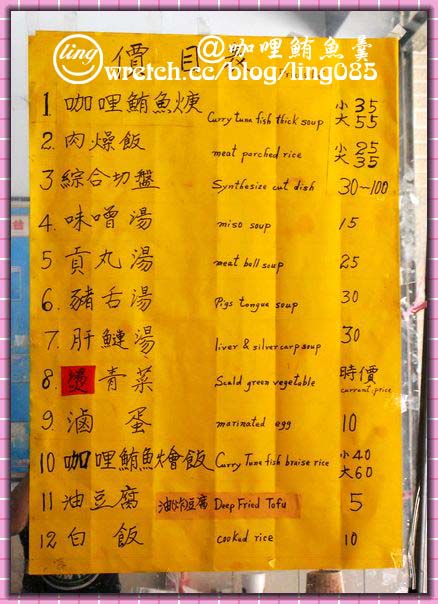 ling
@咖哩鮪魚羹
wretch.cc/blog/ling085
價目表
1 咖哩鮪魚焿 Curry tuna fish thick soup 小35 大55
2. 肉燥飯 meat parched rice 小25 大35
3 綜合切盤 Synthesize cut dish 30~100
4. 味噌湯 miso soup 15
5 貢丸湯 meat ball soup 25
6. 豬舌湯 Pigs tongue soup 30
7. 肝鰱湯 liver & silver carp soup 30
8. 燙青菜 Scald green vegetable 時價 current price
9. 滷蛋 marinated egg 10
10 咖哩鮪魚燴飯 Curry Tuna fish braise rice 小40 大60
11 油豆腐 油炸豆腐 Deep Fried Tofu 5
12 白飯 cooked rice 10